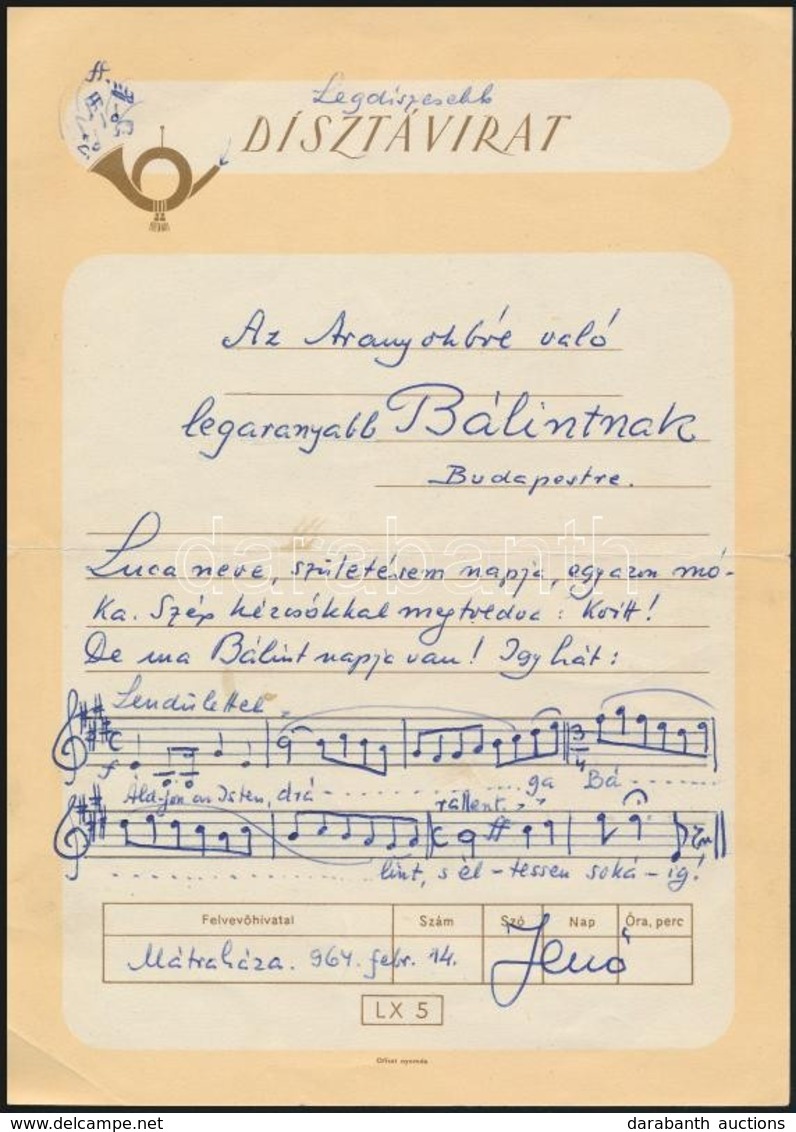 ff.
Legdíszesebb
DÍSZTÁVIRAT
Az Aranyökbré való
legaranyabb Bálintnak
Budapestre.
darabanth
Luca neve, születésem napja, egyazon mó-
ka. Szép kézcsókkal megtoldva: Kvitt!
De ma Bálint napja van! Igy hát:
Lendülettel
f
Áld-jon an Isten, drá - - - ga Bá - - -
rallent.
ff
lint, s él-tessen soká-ig!
Felvevőhivatal Szám Szó Nap Óra, perc
Mátraháza. 964. febr. 14. Jenő
LX 5
Offset nyomás
darabanth auctions